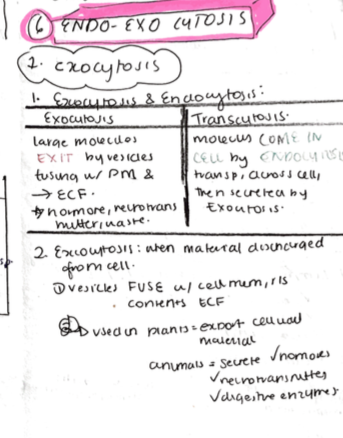 6 ENDO-EXO CYTOSIS
2. exocytosis
1. Exocytosis & Endocytosis:
Exocutosis
large molecules
EXIT by vesicles
fusing w/ PM &
→ ECF.
hormore, neurotrans
mutter, waste.
Transcutosis.
molecues COME IN
cell by ENDOCYTOSIS
transp, across cell,
then secreted by
Exocutosis.
2. Exocutosis: when material discharged
from cell.
① vesicles FUSE w/ cell mem, rls
. contents ECF
used in plants = export cellular
material
animals = secrete ✓hormones
✓neurotransmitters
✓digestive enzymes